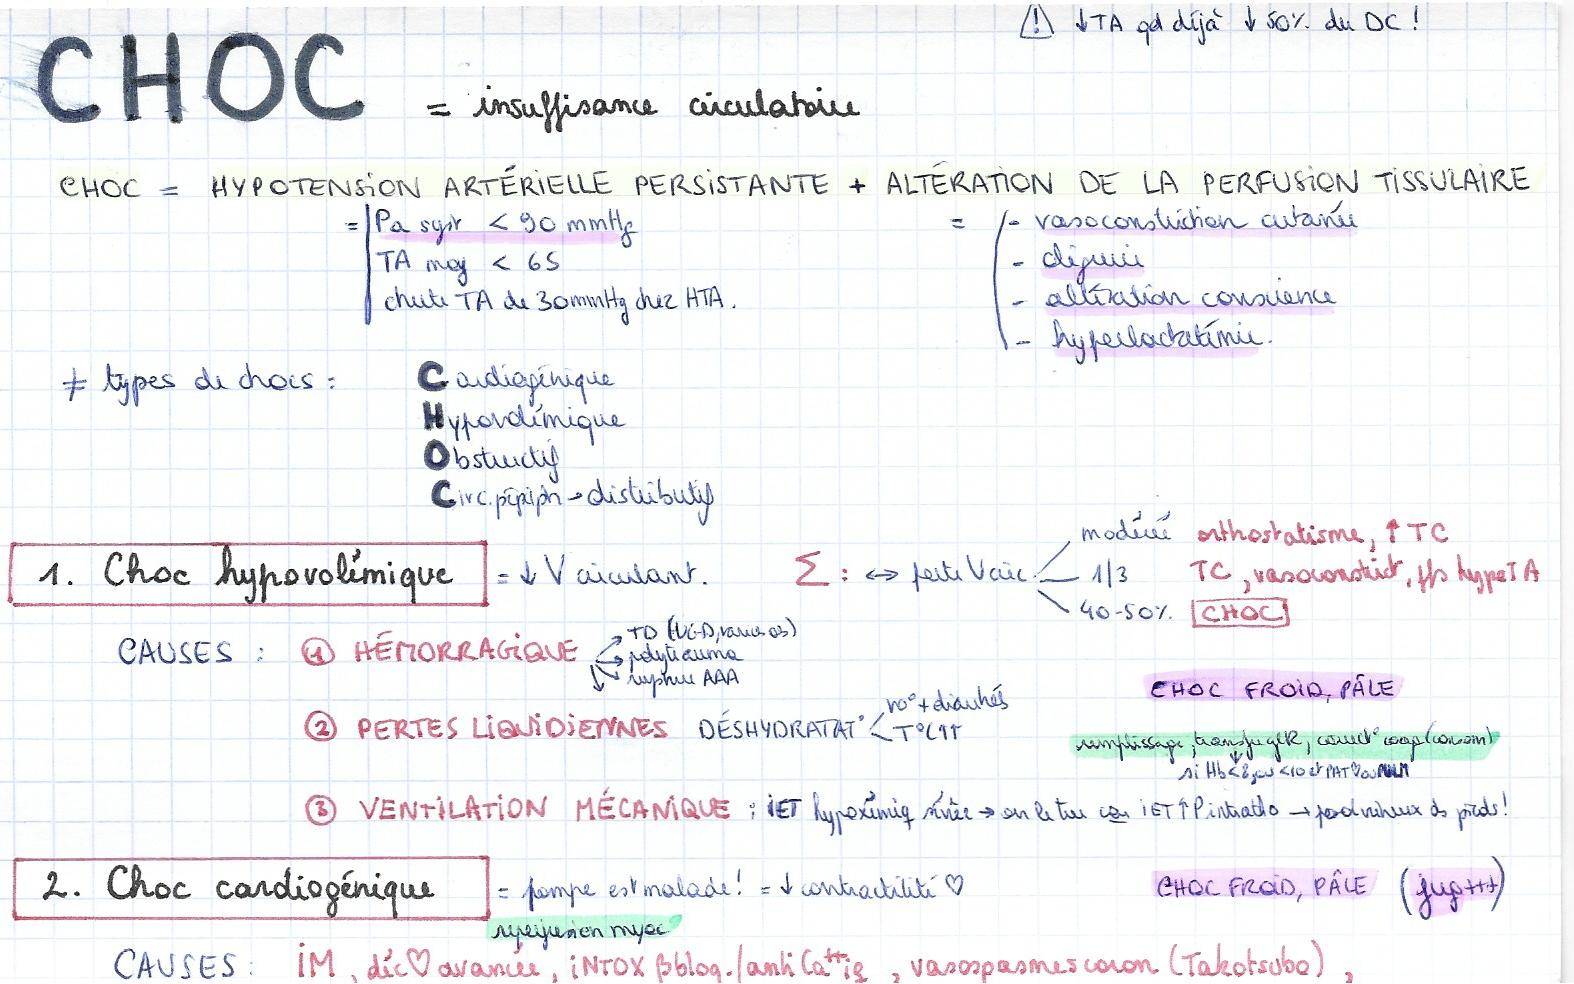 ⚠ ↓TA qd déjà ↓ 50% du DC !
CHOC = insuffisance circulatoire
CHOC = HYPOTENSION ARTÉRIELLE PERSISTANTE + ALTÉRATION DE LA PERFUSION TISSULAIRE
= Pa syst < 90 mmHg
TA moy < 65
chute TA de 30mmHg chez HTA.
= - vasoconstriction cutanée
- oligurie
- altération conscience
- hyperlactatémie.
≠ types de chocs :
Cardiogénique
Hypovolémique
Obstructif
Circ. périph → distributif
1. Choc hypovolémique = ↓ V circulant.
Σ : ↔ perte V circ
modérée orthostatisme, ↑ TC
1/3 TC, vasoconstrict°, hypoTA
40-50% CHOC
CAUSES : ① HÉMORRAGIQUE
TD (UGD, varices oe)
polytrauma
rupture AAA
CHOC FROID, PÂLE
② PERTES LIQUIDIENNES DÉSHYDRATAT°
vo° + diarrhés
T°C↑↑
remplissage, transfu gR, correct° coag (conson)
si Hb < 8, ou < 10 et PAT ♡ ou
③ VENTILATION MÉCANIQUE : iET hypoxémiq sévère → on le tue car iET ↑ P intratho → pas d
2. Choc cardiogénique = pompe est malade ! = ↓ contractilité ♡
CHOC FROID, PÂLE (jug+++)
reperfusion myoc
CAUSES : IM, déc♡ avancée, iNTOX βbloq./anti Ca⁺⁺iq, vasospasmes coron (Takotsubo),